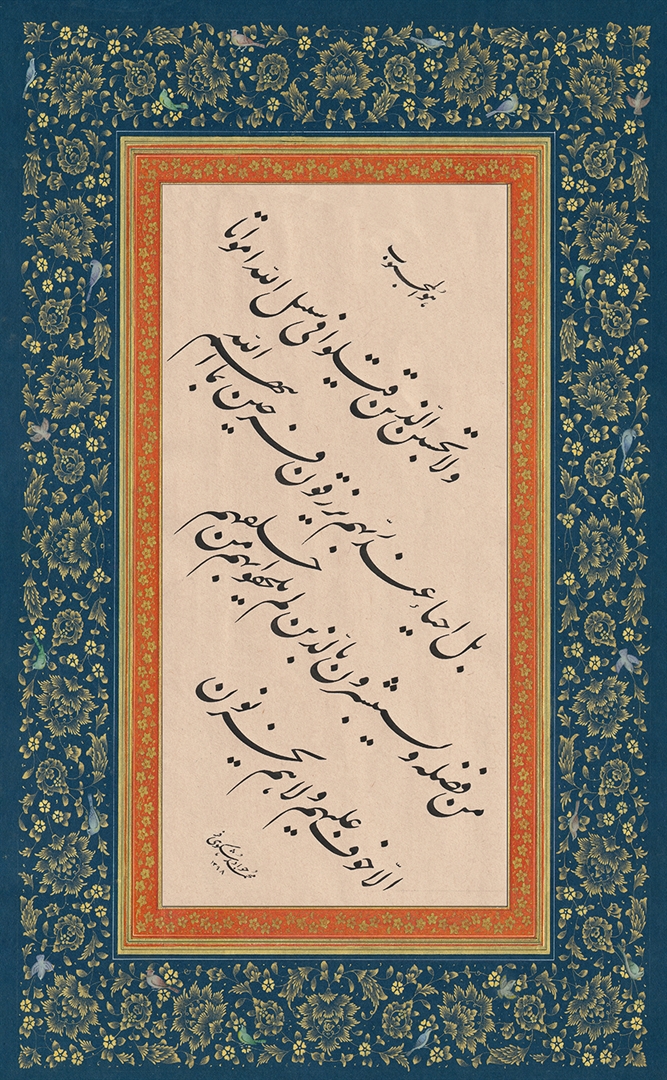 هو المحبوب
ولا تحسبن الّذین قتلوا فی سبیل اللّه امواتا
بل احیاء عند ربّهم یرزقون فرحین بما اتیهم اللّه
من فضله و یستبشرون بالّذین لم یلحقوا بهم من خلفهم
الّا خوف علیهم ولا هم یحزنون
محمدجواد
۱۳۹۸